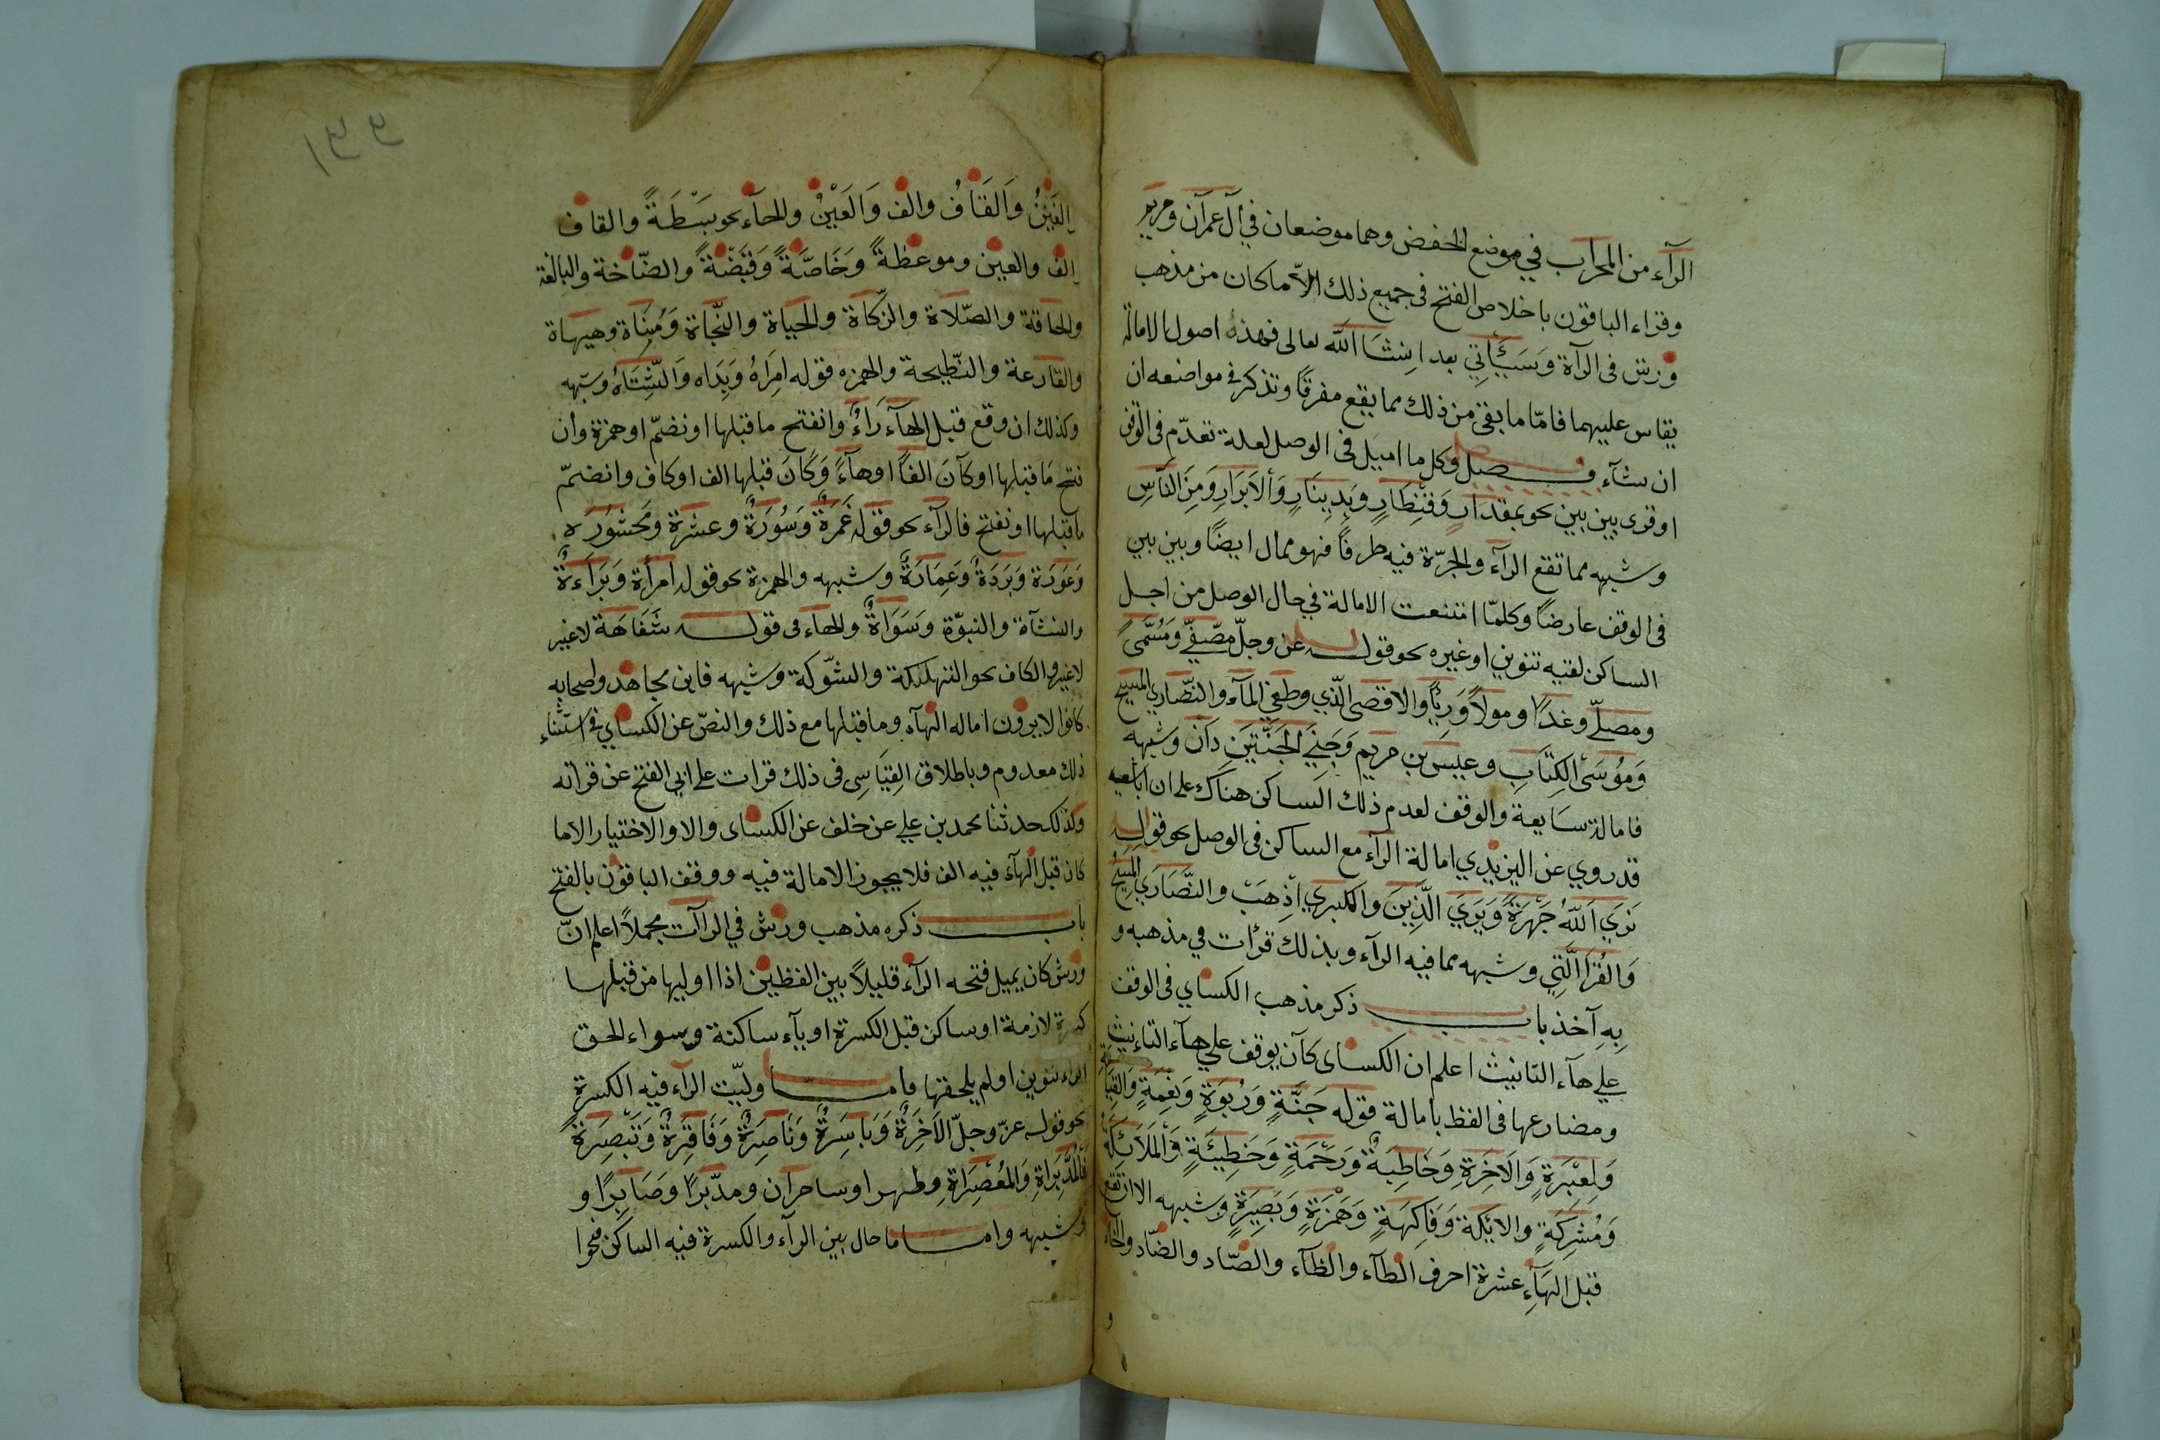 الرآء من المحراب في موضع الخفض وهما موضعان في آل عمرآن ومريم
وقراء الباقون باخلاص الفتح فى جميع ذلك الاّ ما كان من مذهب
ورش فى الرآة وسَيَأتي بعد اِنشَا الله تعالى فهذه اصول الامالة
يقاس عليهما فامّا ما بقى من ذلك مما يقع مفرقًا وتذكر فى مواضعه ان
ان شآء فصل وكل ما اميَل فى الوصل لعلة تعدّم فى الوقف
او قرى بين بين نحو بمقدَارٍ وَقنِطَارٍ وبَدِينَارٍ وَألابَرَارِ وَمِنَ النّاسِ
وشبهه مما تقع الرآء والجرّة فيه طرفًا فهو ممال ايضًا وبين بين
فى الوقف عارضًا وكلمّا امتنعت الامالة في حال الوصل من اجل
الساكن لقيه تنوين او غيره نحو قوله عز وجلّ مصّفىً وَمُسَّمىً
ومصلّى وغدًا ومولاً وَرِبًا والاقصى الّذي وطغي المآء والنّصارى المسيح
وَمُوسَىْ الكِتَابِ وعيسى بن مريم وَجَنىَ الجَنَّتَينِ دَانٍ وشبهه
فامالة سَايعة والوقف لعدم ذلك السَاكن هناك على ان ابا شعيب
قد روي عن اليزيدي امالة الرآء مع الساكن فى الوصل نحو قوله
نَرَي اَللّهُ جَهْرَةً وَيَرَيَ الَّذِينَ والكبري اْذِهَبْ والنَّصَارَي الْمَسِيحُ
وَالقُرَا الَّتِي وشبهه مما فيه الرآء وبذلك قرأت في مذهبه و
بِهِ آخذ باب ذكر مذهب الكساي فى الوقف
على هآء التانيث اعلم ان الكساى كآن يوقف علي هآء التاءنيث
ومضارعها فى الفظ بامالة قوله جَنَّةٍ وَرُبوَةٍ وَنِعْمَةٍ وَالقِيَامَةِ
وَلعِبْرَةٍ وَالاَخِرَةِ وَخَاطِيَةٌ وَرَحْمَةٍ وَخَطِيئَةٍ وَالمَلَآئكَة
وَمُشركَةٍ والائيكة وَفَاكِهَةٍ وَهَمْزَةٍ وَبَصِيَرةٍ وشبهه الا ان تقع
قبل الهَآءِ عشرة احرف الطآء والظآء والصّاد والضّاد والخآء
و
۹۹۱
الغَيْنُ وَاَلقَافُ والف وَالعَيْنْ وللحآء نحو بَسْطَةً والقاف
الف والعين وموعظةً وَخَاصَّةً وَقبَضْةً والصّاخة والبالغة
والحاقة والصّلاة والزّكاة والحياة والنّجاة وَمُنَاة وهيهاة
والقارعة والنّطيحة والهمزه قوله امِرَاهُ وَيَدَاه وَالشِّتَاهُ وشبهه
وكذلك ان وقع قبل الهآء رَاءٌ وانفتح ما قبلها او نضمّ او همزة وان
نتح مَا قبلها او كآنَ الفًا او هآءً وَكَانَ قبلها الف او كاف وانضمّ
ما قبلها او نفتح فالرآء نحو قوله غَمَرةٌ وَسُورَةٌ وعشرة وَمحشورَه
وَعَوَرَة وَبَرَدَةٌ وَعِمَارَةٌ وشبهه والهمزة نحو قوله امرأة وَبَرَآءةٌ
والنشآة والنبوّة وَسَوَاةٌ والهاء فى قوله شَفَاهَة لا غير
لا غير والكاف نحو التهلكلة والشّوكة وشبهه فابن مجاهد واصحابه
كانوا لا يرون اماله الهآء وما قبلها مع ذلك والنصّ عن الكساي فى استثناء
ذلك معدوم وباطلاق القِيَاسِى فى ذلك قرات على ابي الفتح عن قراته
وكذلك حدثنا محمد بن علي عن خلف عن الكساى والاو والاختيار الا ما
كان قبل الهآء فيه الف فلا يجوز الامالة فيه ووقف الباقون بالفتح
باب ذكره مذهب ورش في الرآآت مجملاً اعلم انّ
ورش كان يميل فتحه الرآء قليلاً بين الفظين اذا اوليها من قبلها
كسرة لازمة او ساكن قبل الكسرة او يآء ساكنة وسواء لحق
الراء تنوين او لم يلحقها فامّا وليّت الرآء فيه الكسرة
نحو قوله عزّ وجلّ الاَخِرَةٌ وَبَاسِرَةٌ وَنَاصِرَةٌ وَفَاقِرَةٌ وَتَبْصِرَةٌ
فَالمُدَّبِراةِ وَالمُعْصِرَاةِ وطهرا وساحران ومدّبرًا وصَابِرًا و
وشبهه وامّا ما حال بين الرآء والكسرة فيه الساكن فنحوا